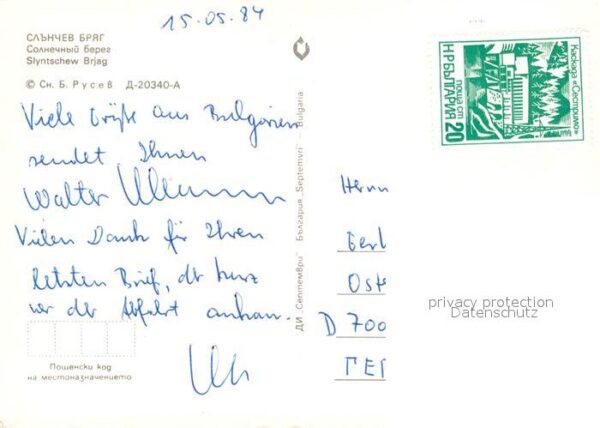 15.05.84
СЛЪНЧЕВ БРЯГ
Солнечный берег
Slyntschew Brjag
© Сн. Б. Русев Д-20340-А
Viele Grüße aus Bulgarien
sendet Ihnen
Walter
Vielen Dank für Ihren
letzten Brief, der kurz
vor der Abfahrt ankam.
Пощенски код
на местоназначението
ДИ „Септември" България „Septemvri" Bulgaria
каскада «Сестримо»
НР БЪЛГАРИЯ
поща ст
20
Herrn
Gerl
Ost
D 700
ГЕР
privacy protection
Datenschutz